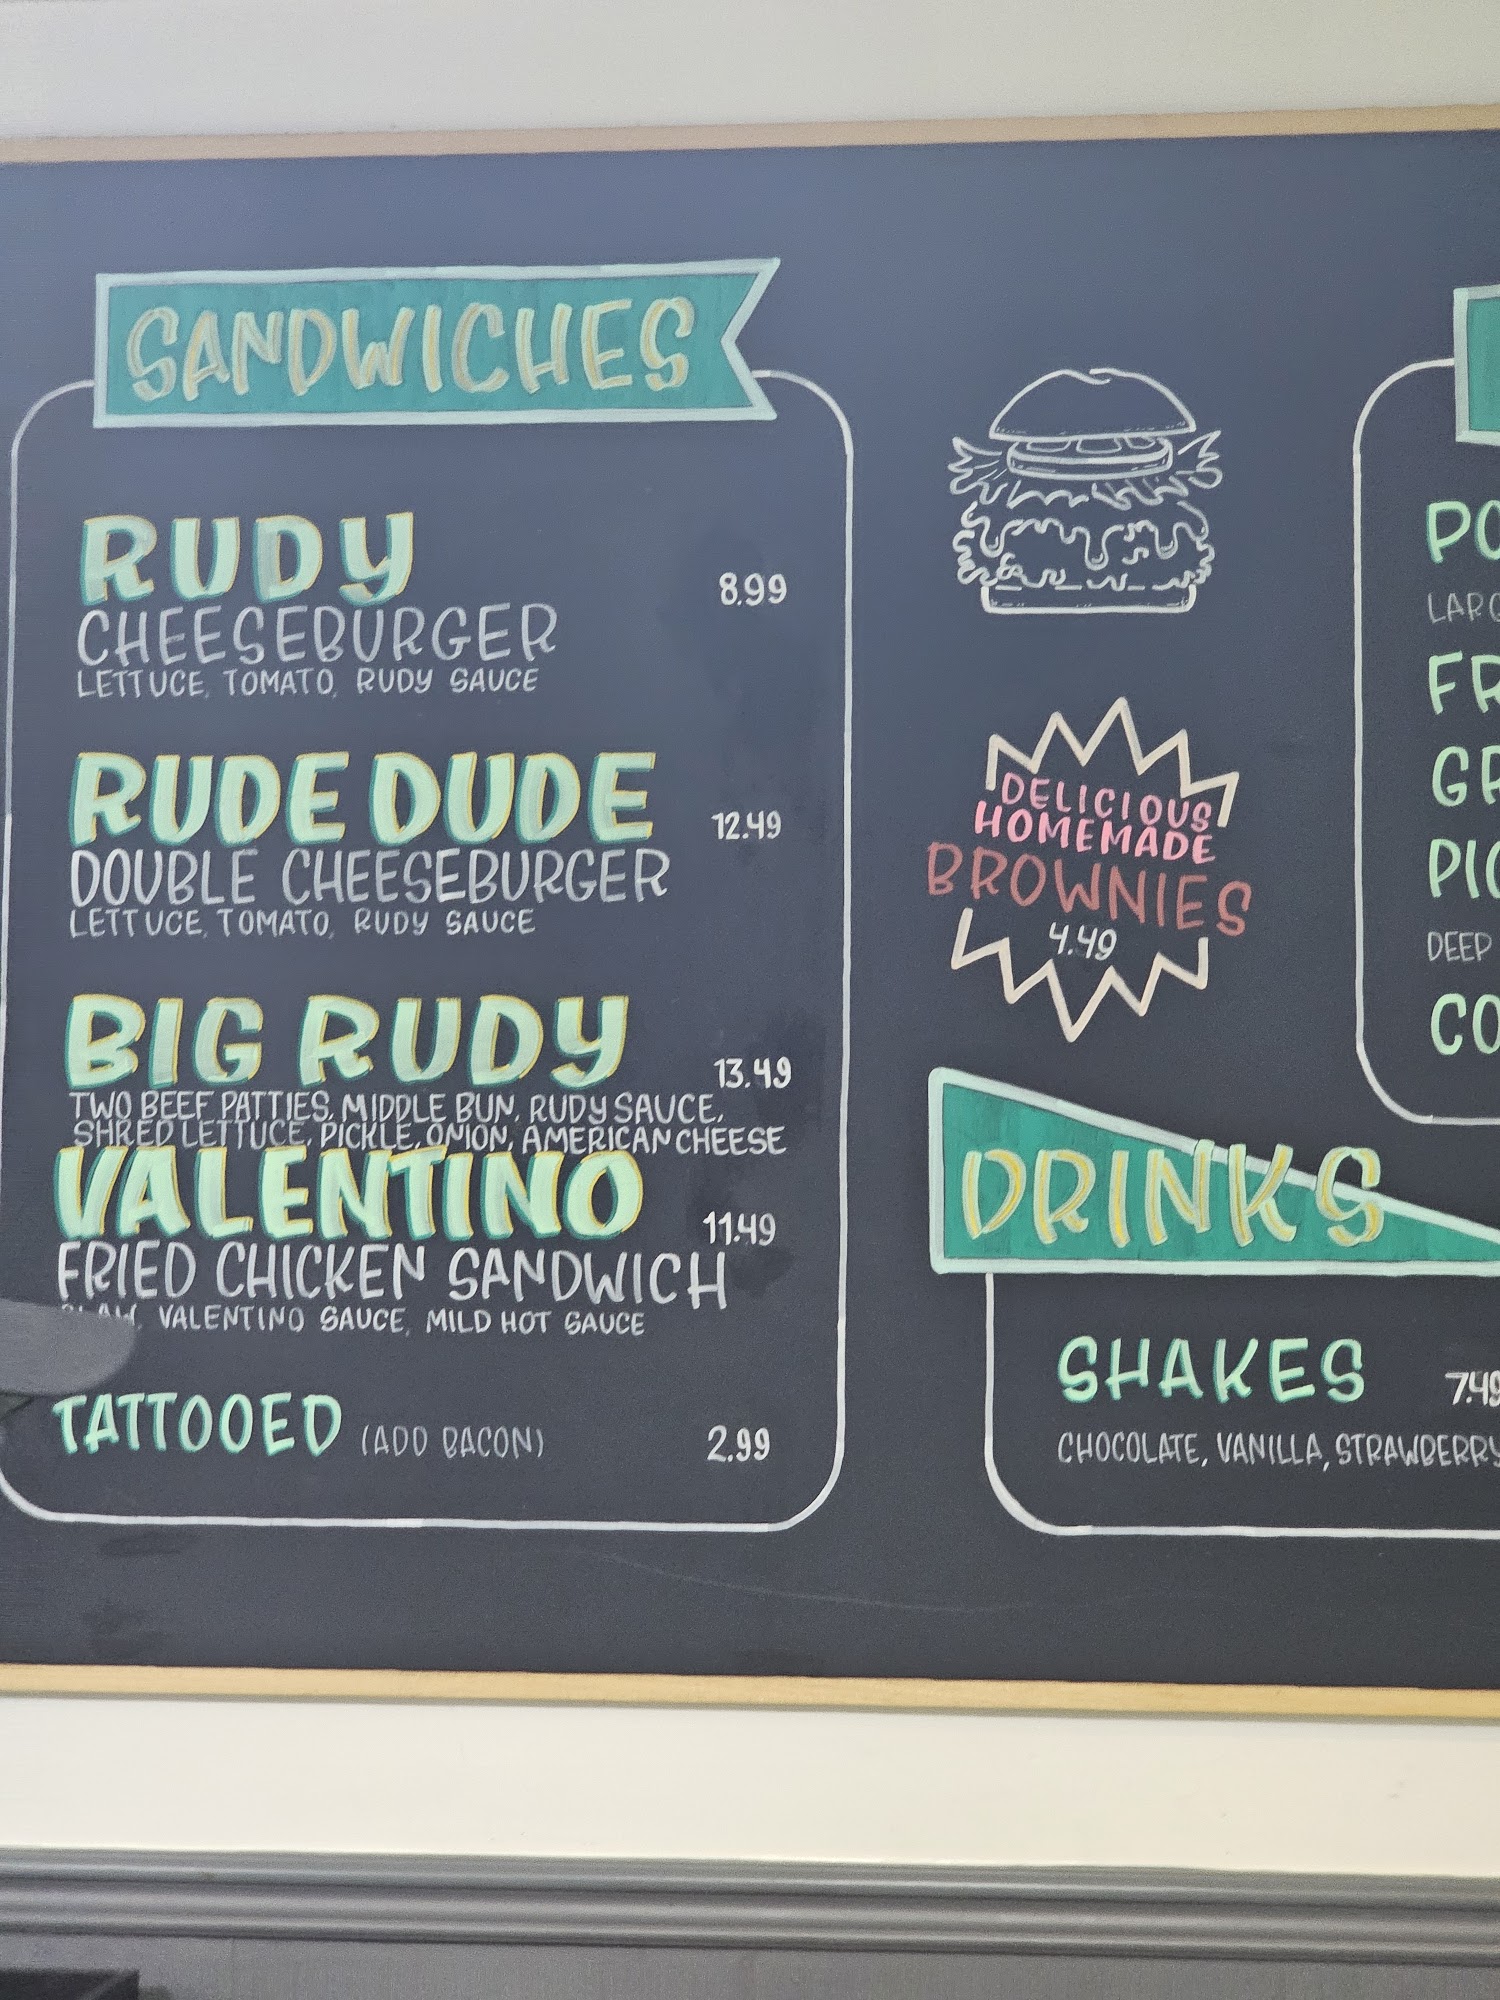 SANDWICHES
RUDY
8.99
CHEESEBURGER
LETTUCE, TOMATO, RUDY SAUCE
RUDE DUDE
12.49
DOUBLE CHEESEBURGER
LETTUCE, TOMATO, RUDY SAUCE
BIG RUDY
13.49
TWO BEEF PATTIES, MIDDLE BUN, RUDY SAUCE,
SHRED LETTUCE, PICKLE, ONION, AMERICAN CHEESE
VALENTINO
11.49
FRIED CHICKEN SANDWICH
VALENTINO SAUCE, MILD HOT SAUCE
TATTOOED (ADD BACON) 2.99
DELICIOUS
HOMEMADE
BROWNIES
4.49
DRINKS
SHAKES 7.49
CHOCOLATE, VANILLA, STRAWBERRY
DEEP